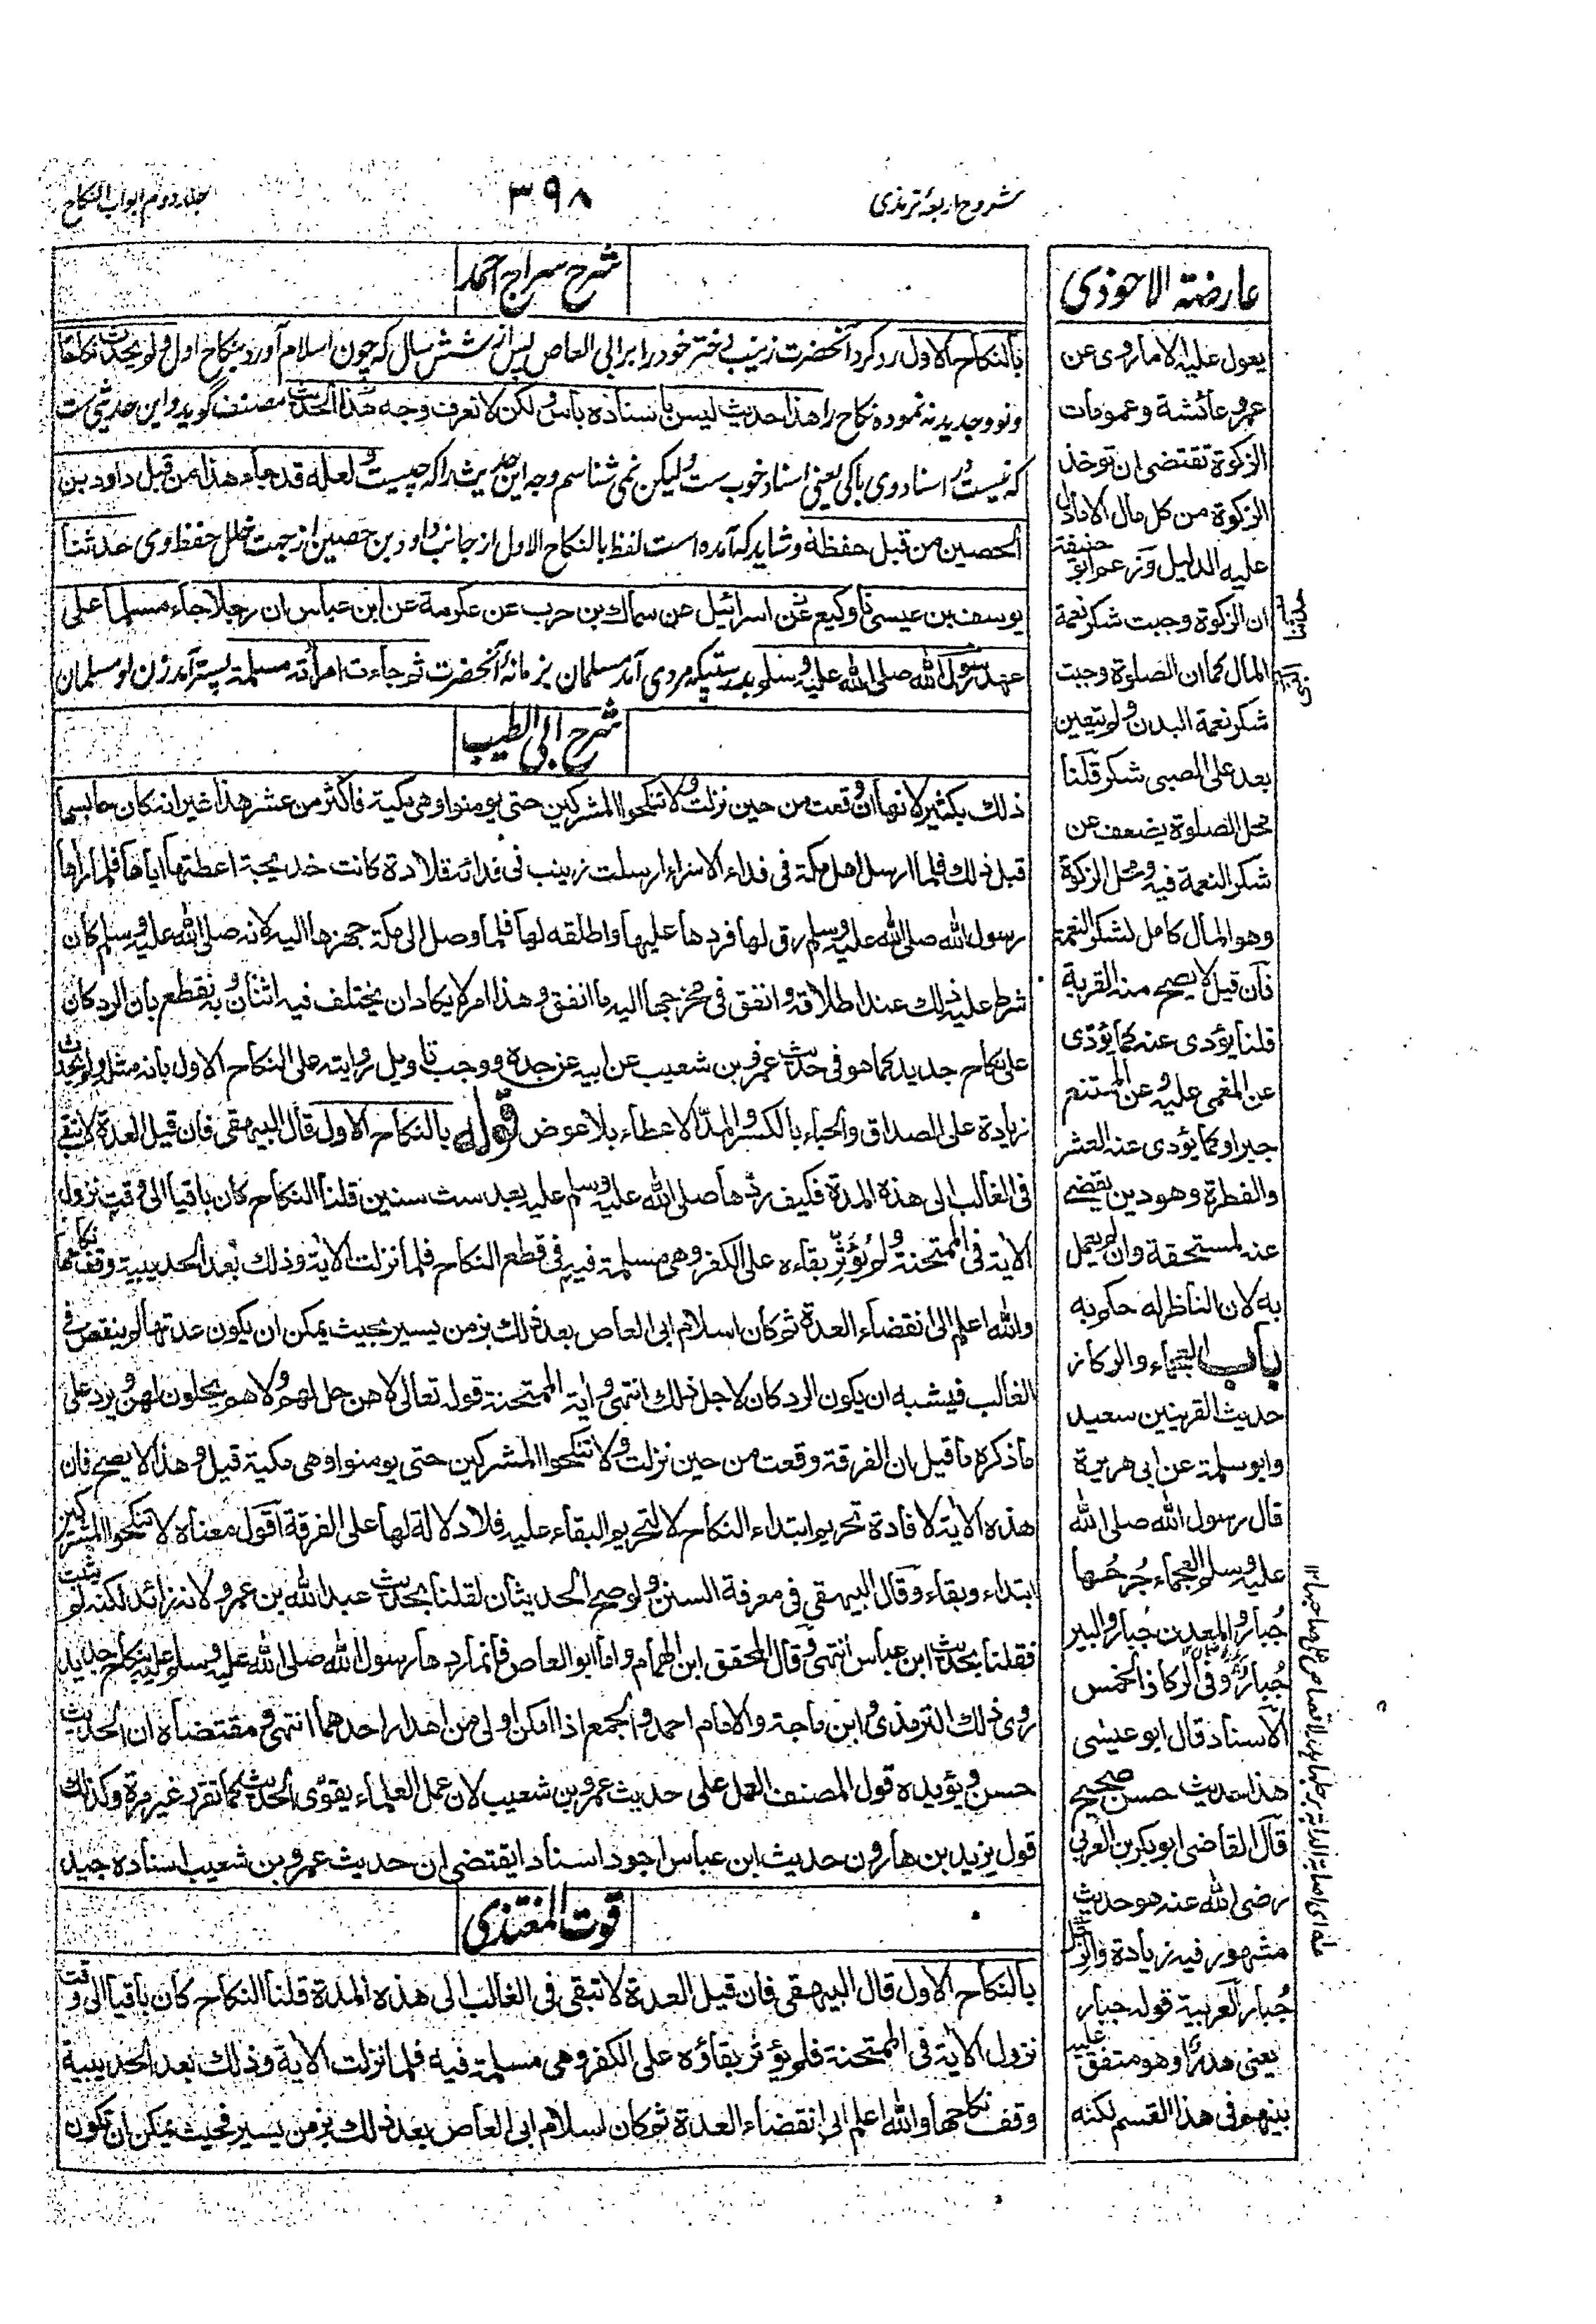 شروح اربعۂ ترمذی
٣٩٨
جلد دوم ابواب النکاح
عارضۃ الاحوذی
یعول علیہ الا ماروی عن
عمر وعائشة وعمومات
الزکوة تقتضی ان توخذ
الزکوة من کل مال الا مادل
علیه الدلیل وزعم ابو حنیفة
ان الزکوة وجبت شکر نعمة
المال کما ان الصلوة وجبت
شکر نعمة البدن ولم یتعین
بعد علی الصبی شکر قلنا
محل الصلوة یضعف عن
شکر النعمة فیه ومحل الزکوة
وهو المال کامل لشکر النعمة
فان قیل لا یصح منه القربة
قلنا یؤدی عنه کما یؤدی
عن المغمی علیه وعن الممتنع
جبرا وکما یؤدی عنه العشر
والفطرة وهو دین یقضی
عنه لمستحقه وان لم یعمل
به لان الناظر له حکم به
باب العجماء والرکاز
حدیث القرینین سعید
وابو سلمة عن ابی هریرة
قال رسول الله صلی الله
علیه وسلم العجماء جُرحها
جُبار والمعدن جُبار والبیر
جُبار وفی الرکاز الخمس
الاسناد قال ابو عیسی
هذا حدیث حسن صحیح
قال القاضی ابو بکر بن العربی
رضی الله عنه هو حدیث
مشهور فیه زیادة والرجل
جُبار العربیة قوله جبار
یعنی هدرا وهو متفق علیه
بینهم فی هذا القسم لکنه
شرح سراج احمد
بالنکاح الاول رد کرد آنحضرت زینب دختر خود را بر ابی العاص پس از شش سال که چون اسلام آورد بنکاح اول ولم یحدث نکاحا
ونو وجدید نه نموده نکاح را هذا حدیث لیس باسناده باس ولکن لا نعرف وجه هذا الحدیث مصنف گوید واین حدیثی ست
که نیست در اسناد وی باکی یعنی اسناد خوب ست ولیکن نمی شناسم وجه این حدیث را که چیست ولعله قد جاء هذا من قبل داود بن
الحصین من قبل حفظه وشاید که آمده است لفظ بالنکاح الاول از جانب داود بن حصین از جهت خلل حفظ وی حدثنا
یوسف بن عیسی نا وکیع عن اسرائیل عن سماك بن حرب عن عکرمة عن ابن عباس ان رجلا جاء مسلما علی
عهد رسول الله صلی الله علیه وسلم بدرستیکه مردی آمد مسلمان بزمانۂ آنحضرت ثم جاءت امرأته مسلمة پستر آمد زن او مسلمان
شرح ابی الطیب
ذلك بکثیر لانها ان وقعت من حین نزلت ولا تنکحوا المشرکین حتی یومنوا وهی مکیة فاکثر من عشر هذا غیر انه کان حابسها
قبل ذلك فلما ارسل اهل مکة فی فداء الاسراء ارسلت زینب فی فدائه قلادة کانت خدیجة اعطتها ایاها فلما راها
رسول الله صلی الله علیه وسلم رق لها فردها علیها واطلقه لها فلما وصل الی مکة جهزها الیه لانه صلی الله علیه وسلم کان
شرط علیه ذلك عند اطلاقه واتفق فی مخرجها الیه ما اتفق وهذا امر لا یکاد ان یختلف فیه اثنان وبه نقطع بان الرد کان
علی نکاح جدید کما هو فی حدیث عمرو بن شعیب عن ابیه عن جده ووجب تاویل روایته علی النکاح الاول بانه مثله ولم یحدث
زیادة علی الصداق والحباء بالکسر والمد الاعطاء بلا عوض قوله بالنکاح الاول قال البیهقی فان قیل العدة لا تبقی
فی الغالب الی هذه المدة فکیف ردها صلی الله علیه وسلم علیه بعد ست سنین قلنا النکاح کان باقیا الی وقت نزول
الایة فی الممتحنة ولم یؤثر بقاءه علی الکفر وهی مسلمة فیه فی قطع النکاح فلما نزلت الایة وذلك بعد الحدیبیة وقف نکاحها
والله اعلم الی انقضاء العدة ثم کان اسلام ابی العاص بعد ذلك بزمن یسیر بحیث یمکن ان یکون عدتها لم ینقض فی
الغالب فیشبه ان یکون الرد کان لاجل ذلك انتهی وایة الممتحنة قوله تعالی لا هن حل لهم ولا هم یحلون لهن ویرد علی
ما ذکره ما قیل ان الفرقة وقعت من حین نزلت ولا تنکحوا المشرکین حتی یومنوا وهی مکیة قیل وهذا لا یصح فان
هذه الایة لافادة تحریم ابتداء النکاح لا لتحریم البقاء علیه فلا دلالة لها علی الفرقة اقول معناه لا تنکحوا المشرکین
ابتداء وبقاء وقال البیهقی فی معرفة السنن ولو صح الحدیثان لقلنا بحدیث عبد الله بن عمرو لانه زائد لکنه لم یثبت
فقلنا بحدیث ابن عباس انتهی وقال المحقق ابن الهمام واما ابو العاص فانما ردها رسول الله صلی الله علیه وسلم علیه بنکاح جدید
روی ذلك الترمذی وابن ماجة والامام احمد والجمع اذا امکن اولی من اهدار احدهما انتهی ومقتضاه ان الحدیث
حسن ویؤیده قول المصنف العمل علی حدیث عمرو بن شعیب لان عمل العلماء یقوی الحدیث کما تقرر غیر مرة وکذلك
قول یزید بن هارون حدیث ابن عباس اجود اسنادا یقتضی ان حدیث عمرو بن شعیب اسناده جید
قوت المغتذی
بالنکاح الاول قال البیهقی فان قیل العدة لا تبقی فی الغالب الی هذه المدة قلنا النکاح کان باقیا الی وقت
نزول الایة فی الممتحنة فلم یؤثر بقاؤه علی الکفر وهی مسلمة فیه فلما نزلت الایة وذلك بعد الحدیبیة
وقف نکاحها والله اعلم الی انقضاء العدة ثم کان اسلام ابی العاص بعد ذلك بزمن یسیر فحیث یمکن ان تکون